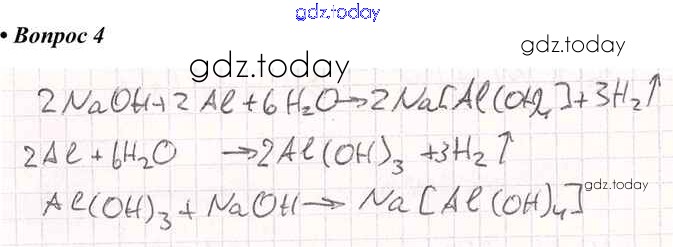 gdz.today
• Вопрос 4
gdz.today
gdz.today
2NaOH+2Al+6H₂O→2Na[Al(OH)₄]+3H₂↑
2Al+6H₂O →2Al(OH)₃ +3H₂↑
gdz.today
Al(OH)₃+NaOH→Na[Al(OH)₄]